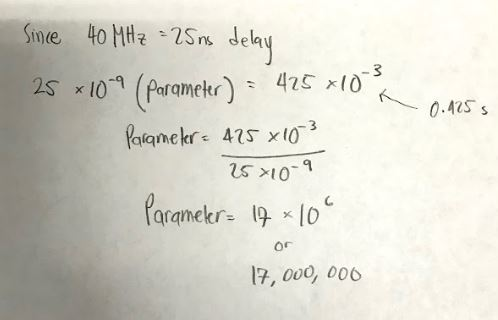 Since 40 MHz = 25ns delay
25 ×10⁻⁹ (Parameter) = 425 ×10⁻³
0.425 s
Parameter = 425 ×10⁻³
25 ×10⁻⁹
Parameter = 17 ×10⁶
or
17,000,000